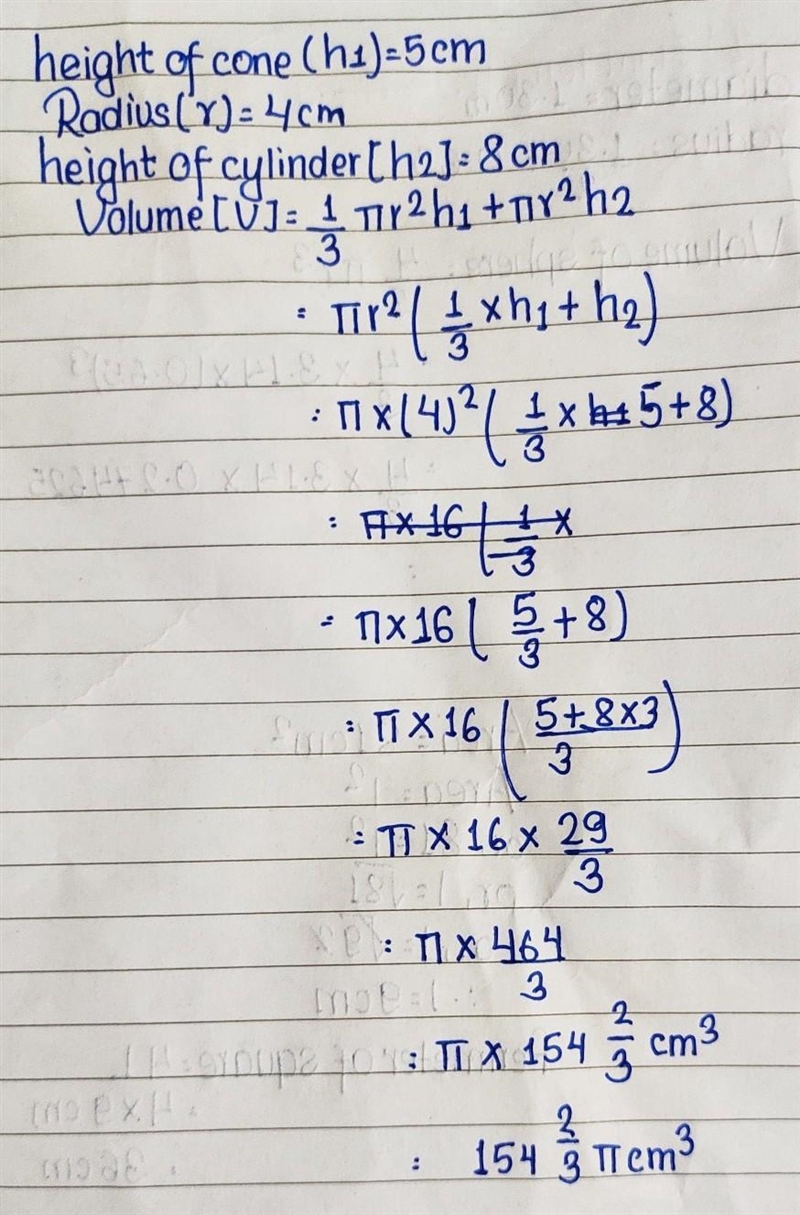 height of cone (h1)=5cm
Radius(r)=4cm
height of cylinder[h2]=8cm
Volume[V]= 1/3 πr²h1+πr²h2
= πr²(1/3 ×h1+h2)
= π×(4)²(1/3 × 5+8)
= π×16(1/3 ×
= π×16(5/3+8)
= π×16(5+8×3/3)
= π×16×29/3
= π×464/3
= π×154 2/3 cm³
= 154 2/3 πcm³